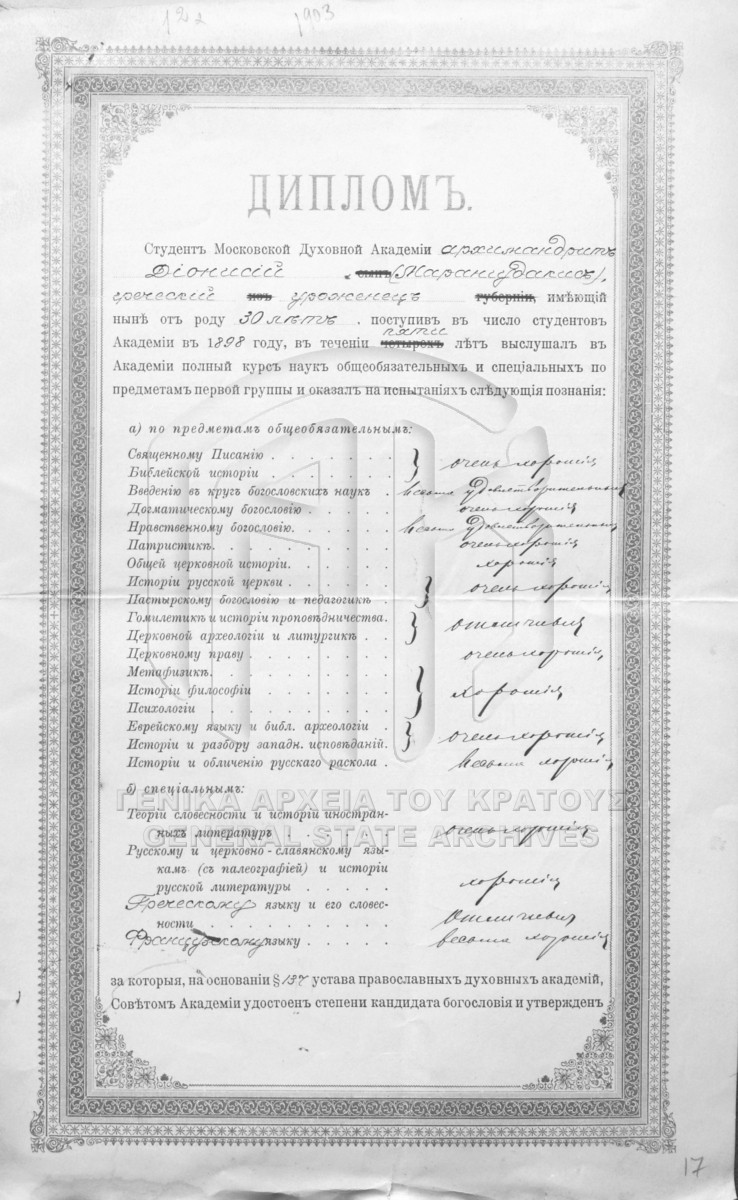 1903
ДИПЛОМЪ.
Студентъ Московской Духовной Академіи архимандритъ
Діонисій сынъ (Маранцудакисъ),
греческій изъ уроженецъ губерніи, имѣющій
нынѣ отъ роду 30 лѣтъ . поступивъ въ число студентовъ
пяти
Академіи въ 1898 году, въ теченіи четырехъ лѣтъ выслушалъ въ
Академіи полный курсъ наукъ общеобязательныхъ и спеціальныхъ по
предметамъ первой группы и оказалъ на испытаніяхъ слѣдующія познанія:
а) по предметамъ общеобязательнымъ:
Священному Писанію . . . . . . . } очень хорошія
Библейской исторіи . . . . . . .
Введенію въ кругъ богословскихъ наукъ . весьма удовлетворительныя
Догматическому богословію . . . . . очень хорошія
Нравственному богословію. . . . . . весьма удовлетворительныя
Патристикѣ. . . . . . . . . . очень хорошія
Общей церковной исторіи. . . . . . хорошія
Исторіи русской церкви . . . . . . } очень хорошія
Пастырскому богословію и педагогикѣ .
Гомилетикѣ и исторіи проповѣдничества. } отличныя
Церковной археологіи и литургикѣ . .
Церковному праву . . . . . . . . очень хорошія
Метафизикѣ. . . . . . . . . . }
Исторіи философіи . . . . . . . хорошія
Психологіи . . . . . . . . . .
Еврейскому языку и библ. археологіи . } очень хорошія
Исторіи и разбору западн. исповѣданій.
Исторіи и обличенію русскаго раскола . весьма хорошія
б) спеціальнымъ:
ΓΕΝΙΚΑ ΑΡΧΕΙΑ ΤΟΥ ΚΡΑΤΟΥΣ
Теоріи словесности и исторіи иностран-
ныхъ литературъ . . . . . . очень хорошія
GENERAL STATE ARCHIVES
Русскому и церковно-славянскому язы-
камъ (съ палеографіей) и исторіи
русской литературы . . . . . хорошія
Греческому языку и его словес-
ности . . . . . . . . . . отличныя
Французскому языку . . . . . весьма хорошія
за которыя, на основаніи § 137 устава православныхъ духовныхъ академій,
Совѣтомъ Академіи удостоенъ степени кандидата богословія и утвержденъ
17